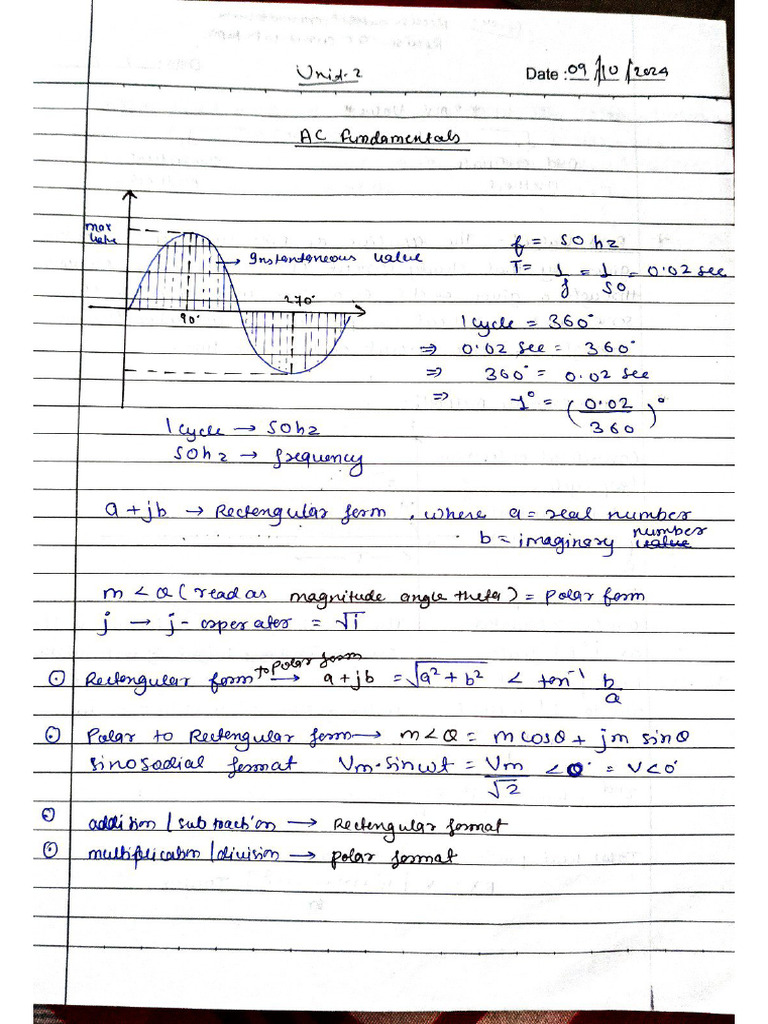 Unit-2
Date : 09/10/2024
AC fundamentals
max value
Instantaneous value
90°
270°
f = 50 hz
T = 1/f = 1/50 = 0.02 sec
1 cycle = 360°
⇒ 0.02 sec = 360°
⇒ 360° = 0.02 sec
⇒ 1° = (0.02/360)°
1 cycle → 50hz
50hz → frequency
a + jb → Rectengular form , where a = real number
b = imaginary number value
m < θ (read as magnitude angle theta) = polar form
j → j - osperater = √1
Rectengular form to polar form → a + jb = √a² + b² < ten⁻¹ b/a
Polar to Rectengular form → m < θ = m cosθ + jm sinθ
sinosodial format Vm. sin wt = Vm/√2 < 0° = V < 0°
addision / subtraction → Rectengular format
multiplication / division → polar format